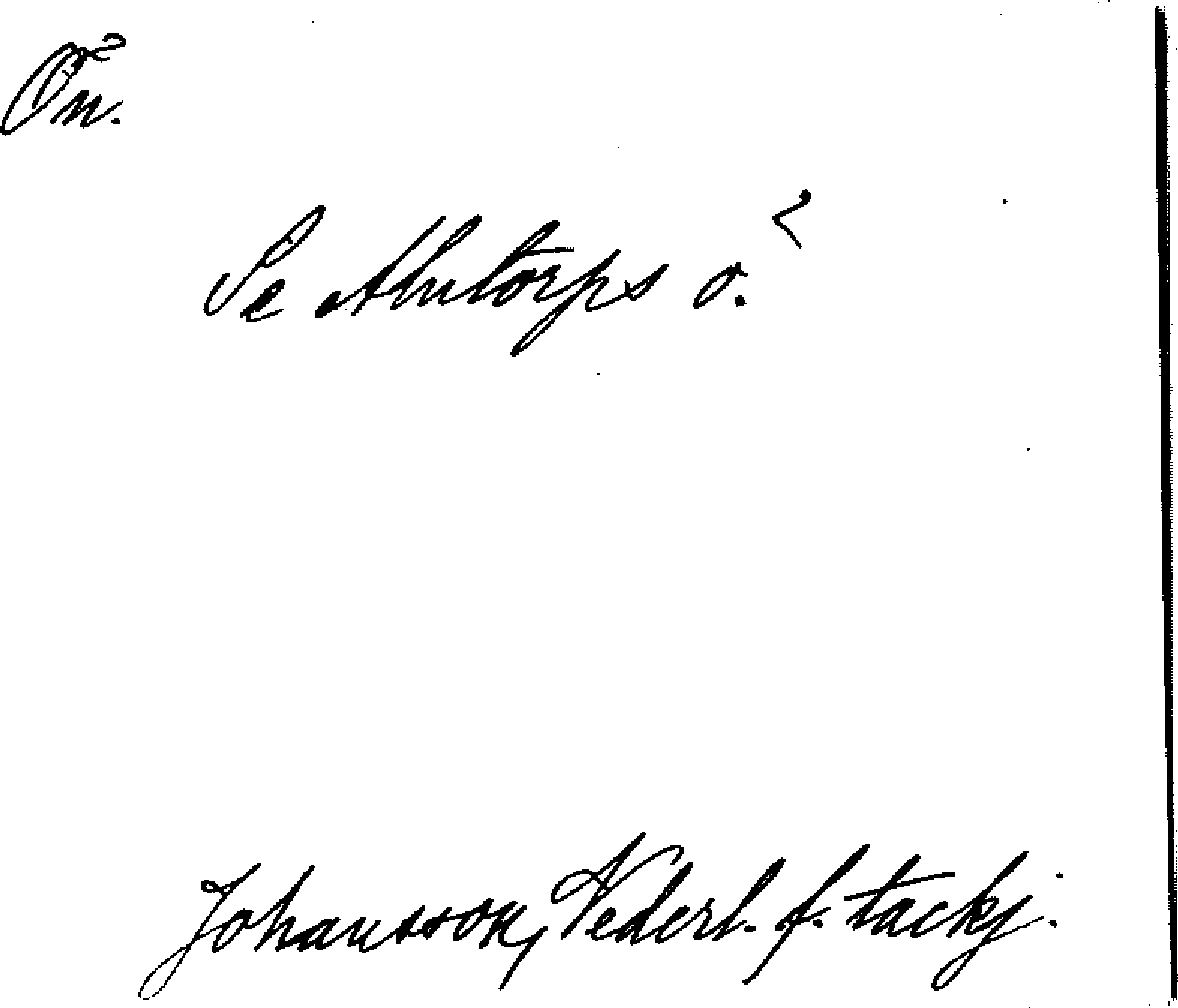 Ön.
Se Alntorps ö.
Johansson, Nederl. f. tackj.